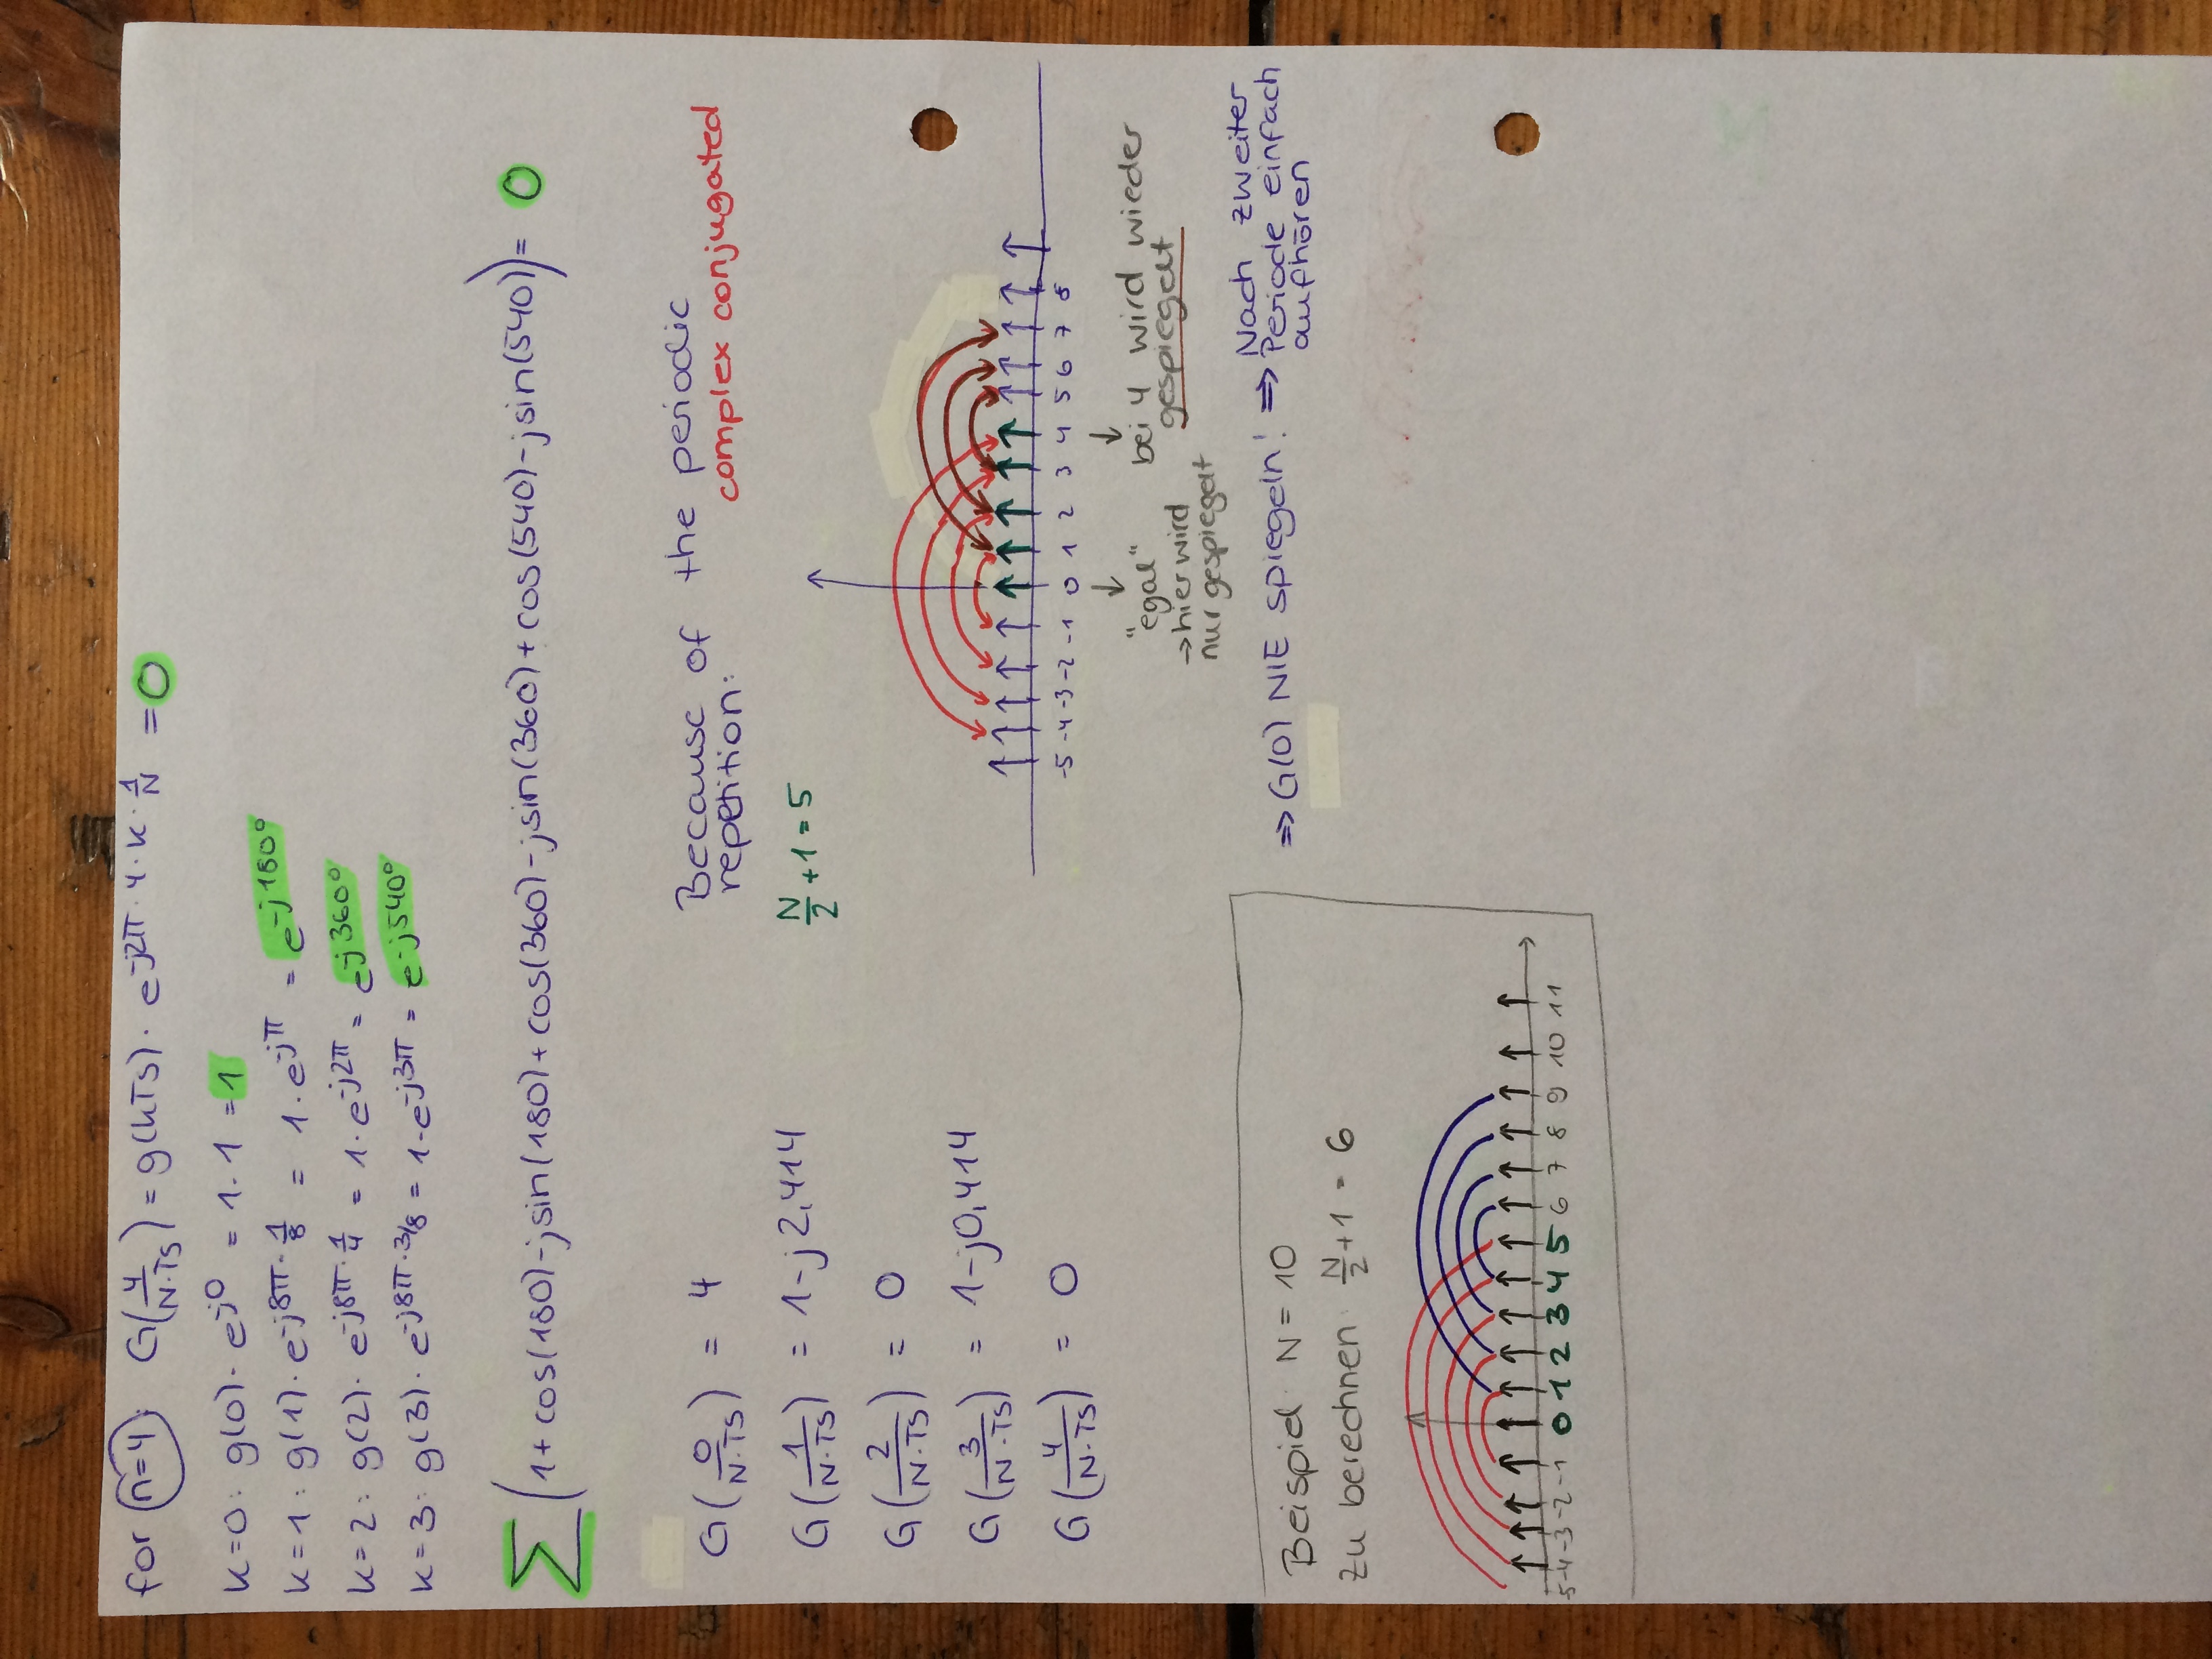 for n=4: G(4/(N·TS)) = g(kTs) · e^(-j2π·4·k·1/N) = 0
k=0: g(0) · e^(-j0) = 1·1 = 1
k=1: g(1) · e^(-j8π·1/8) = 1·e^(-jπ) = e^(-j180°)
k=2: g(2) · e^(-j8π·1/4) = 1·e^(-j2π) = e^(-j360°)
k=3: g(3) · e^(-j8π·3/8) = 1·e^(-j3π) = e^(-j540°)
Σ(1+cos(180)-jsin(180)+cos(360)-jsin(360)+cos(540)-jsin(540)) = 0
G(0/(N·TS)) = 4
G(1/(N·TS)) = 1-j2,414
G(2/(N·TS)) = 0
G(3/(N·TS)) = 1-j0,414
G(4/(N·TS)) = 0
Because of the periodic
repetition: complex conjugated
N/2 +1 = 5
-5 -4 -3 -2 -1 0 1 2 3 4 5 6 7 8
"egal"
→ hier wird
nur gespiegelt
bei 4 wird wieder
gespiegelt
⇒ G(0) NIE spiegeln! ⇒ Nach zweiter
Periode einfach
aufhören
Beispiel: N = 10
Zu berechnen: N/2 +1 = 6
-5 -4 -3 -2 -1 0 1 2 3 4 5 6 7 8 9 10 11